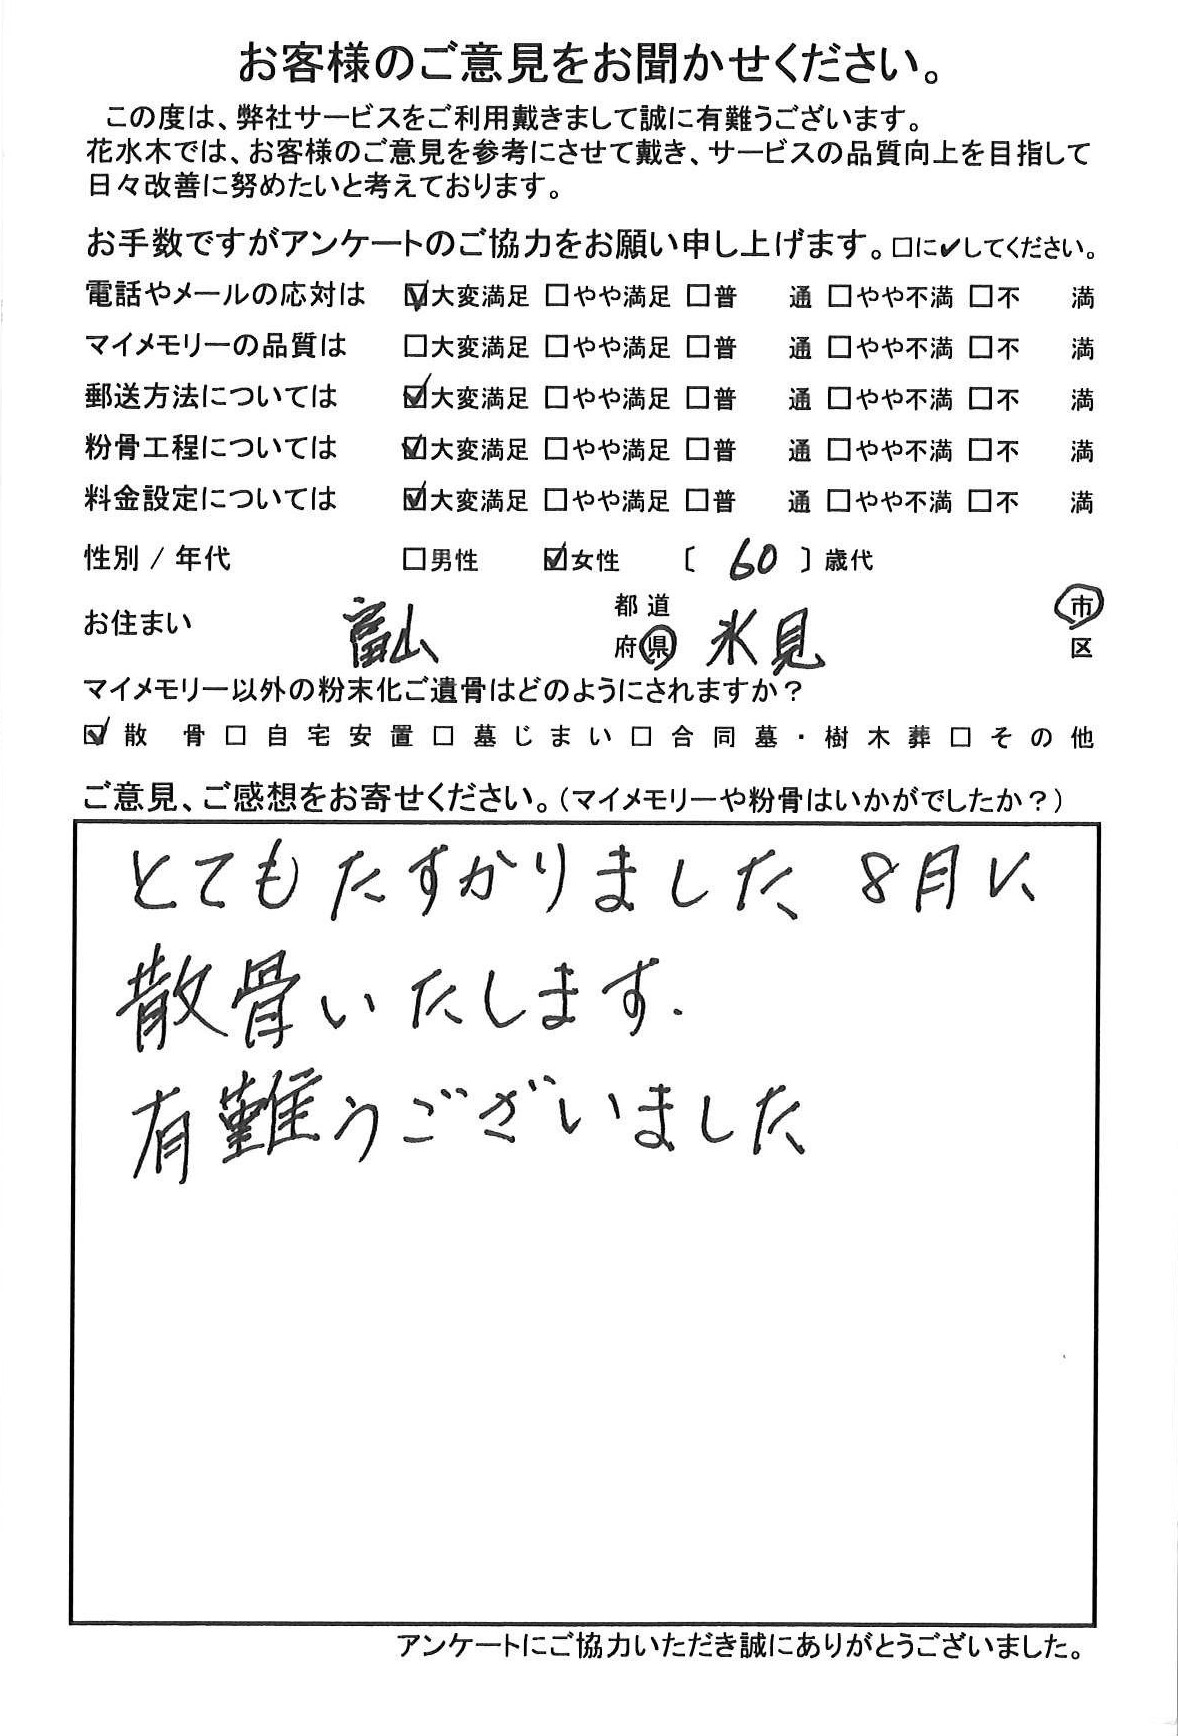 お客様のご意見をお聞かせください。
この度は、弊社サービスをご利用戴きまして誠に有難うございます。
花水木では、お客様のご意見を参考にさせて戴き、サービスの品質向上を目指して
日々改善に努めたいと考えております。
お手数ですがアンケートのご協力をお願い申し上げます。□に✔してください。
電話やメールの応対は ☑大変満足 □やや満足 □普 通 □やや不満 □不 満
マイメモリーの品質は □大変満足 □やや満足 □普 通 □やや不満 □不 満
郵送方法については ☑大変満足 □やや満足 □普 通 □やや不満 □不 満
粉骨工程については ☑大変満足 □やや満足 □普 通 □やや不満 □不 満
料金設定については ☑大変満足 □やや満足 □普 通 □やや不満 □不 満
性別 / 年代 □男性 ☑女性 〔 60 〕歳代
お住まい 富山 都道府県 氷見 市区
マイメモリー以外の粉末化ご遺骨はどのようにされますか？
☑散 骨□自宅安置□墓じまい□合同墓・樹木葬□その他
ご意見、ご感想をお寄せください。（マイメモリーや粉骨はいかがでしたか？）
とてもたすかりました、8月に
散骨いたします.
有難うございました
アンケートにご協力いただき誠にありがとうございました。